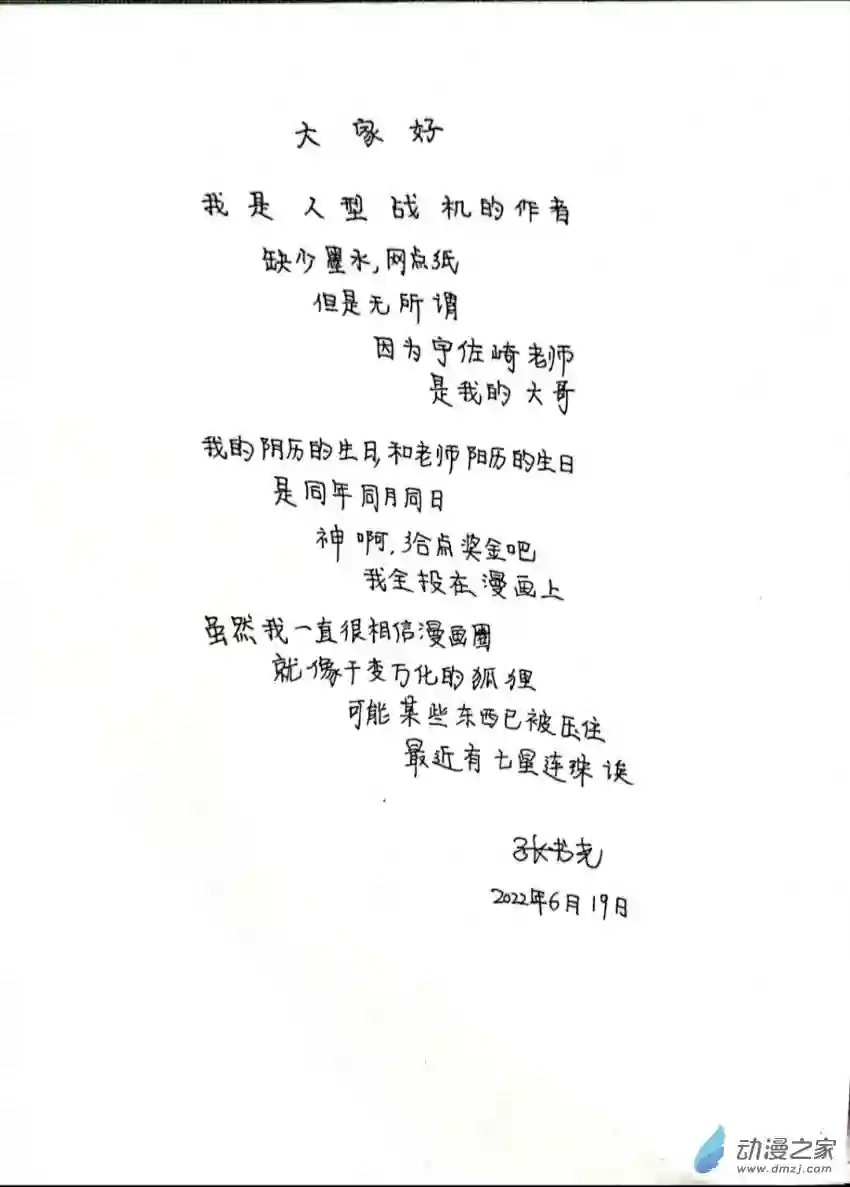 大家好
我是人型战机的作者
缺少墨水,网点纸
但是无所谓
因为宇佐崎老师
是我的大哥
我的阴历的生日,和老师阳历的生日
是同年同月同日
神啊,给点奖金吧
我全投在漫画上
虽然我一直很相信漫画圈
就像千变万化的狐狸
可能某些东西已被压住
最近有七星连珠诶
张书尧
2022年6月19日
动漫之家
www.dmzj.com